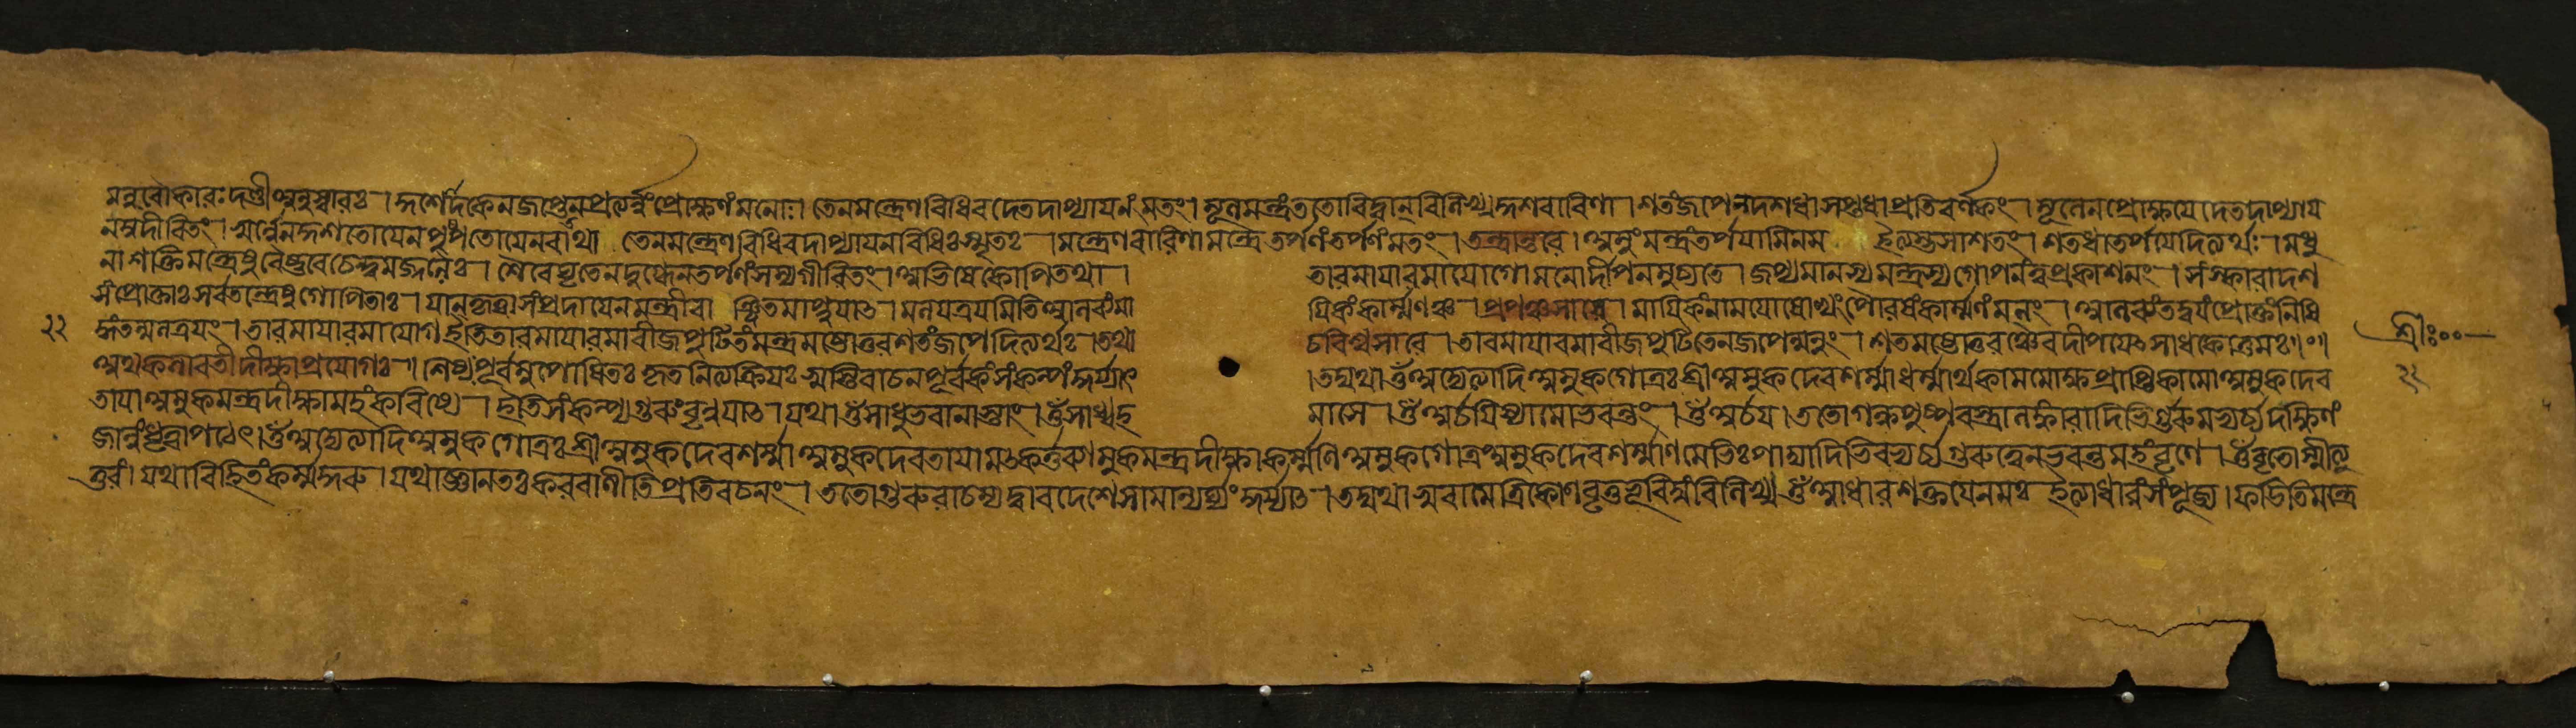 মনুবৌকারঃ দণ্ডীঅনুস্বারঃ । কুশোদকেনজপ্তেনপ্রত্যর্ন্নংপ্রোক্ষণংমনোঃ । তেনমন্ত্রেণবিধিবদেতদাপ্যায়নংমতং । মূলমন্ত্রংততোবিদ্বান্ বিলিখ্যকুশবারিণা । শতংজপেন দশধাসপ্তধাপ্রতিবর্ণকং । মূলেনপ্রোক্ষয়েদেতদাপ্যায়
নমুদীরিতং । অর্ন্নেনকুশতোয়েনপুষ্পতোয়েনবাতথা তেনমন্ত্রেণবিধিবদাপ্যায়নবিধিঃস্মৃতঃ । মন্ত্রেণবারিণামন্ত্রেতর্পণংতর্পণংমতং । তন্ত্রান্তরে । অমুংমন্ত্রংতর্পয়ামিনম ইত্যম্ভসাশতং । শতধাতর্পয়েদিত্যর্থঃ । মধু
নাশক্তিমন্ত্রেষুবৈষ্ণবেচেন্দুমজ্জলৈঃ । শৈবেঘৃতেনদুগ্ধেনতর্পণংসম্যগীরিতং । অভিষেকোপিতথা । তারমায়ারমাযোগোমনোর্দীপনমুচ্যতে । জপ্যমানস্যমন্ত্রস্যগোপনন্ত্বপ্রকাশনং । সংস্কারাদশ
সংপ্রোক্তাঃসর্বতন্ত্রেষুগোপিতাঃ । যান্ কৃত্বাসংপ্রদায়েনমন্ত্রীবা ঞ্ছিতমাপ্নুয়াৎ । মলয়ত্রয়মিতিআনবংমা য়িকংকার্ম্মণঞ্চ । প্রপঞ্চসারে । মায়িকংনামযোষোত্থংপৌরুষংকার্ম্মণংমলং । আনবংতদ্বয়ংপ্রোক্তংনিষি
২২ দ্ধংতন্মলত্রয়ং । তারমায়ারমাযোগইতিতারমায়ারমাবীজপুটিতংমন্ত্রমষ্টোত্তরশতংজপেদিত্যর্থঃ । তথা চবিশ্বসারে । তারমায়ারমাবীজপুটিতেনজপেন্মনুং । শতমষ্টোত্তরঞ্চৈবদীপয়েৎসাধকোত্তমঃ ।৹। শ্রীঃ৹৹
অথকলাবতীদীক্ষাপ্রয়োগঃ । শিষ্যঃপূর্বমুপোষিতঃকৃতনিত্যক্রিয়ঃস্বস্তিবাচনপূর্বকংসংকল্পংকুর্য্যাৎ । তদ্যথা । ওঁঅদ্যেত্যাদিঅমুকগোত্রঃশ্রীঅমুকদেবশর্ম্মাধর্ম্মার্থকামমোক্ষপ্রাপ্তিকামোঅমুকদেব ২২
তায়াঅমুকমন্ত্রদীক্ষামহংকরিষ্যে । ইতিসংকল্প্যগুরুংবৃণুয়াৎ । যথা । ওঁসাধুভবানাস্তাং । ওঁসাধ্বহ মাসে । ওঁঅর্চয়িষ্যামোভবন্তং । ওঁঅর্চয় । ততোগন্ধপুষ্পবস্ত্রালঙ্কারাদিভির্গুরুমভ্যর্চ্যদক্ষিণং
জানুংধৃত্বাপঠেৎ । ওঁঅদ্যেত্যাদিঅমুকগোত্রঃশ্রীঅমুকদেবশর্ম্মাঅমুকদেবতায়ামৎকর্তৃকামুকমন্ত্রদীক্ষাকর্ম্মণিঅমুকগোত্রঅমুকদেবশর্ম্মাণমেভিঃপাদ্যাদিভিরভ্যর্চ্যগুরুত্বেনভবন্তমহংবৃণে । ওঁবৃতোস্মীত্যু
ত্তরং । যথাবিহিতংকর্ম্মকুরু । যথাজ্ঞানতঃকরবাণীতিপ্রতিবচনং । ততোগুরুরাচম্যদ্বারদেশেসামান্যর্ঘ্যংকুর্য্যাৎ । তদ্যথা স্ববামেত্রিকোণবৃত্তভূবিম্বংবিলিখ্য ওঁআধারশক্তয়েনমঃ ইত্যাধারংসংপূজ্য । ফডিতিমন্ত্রে